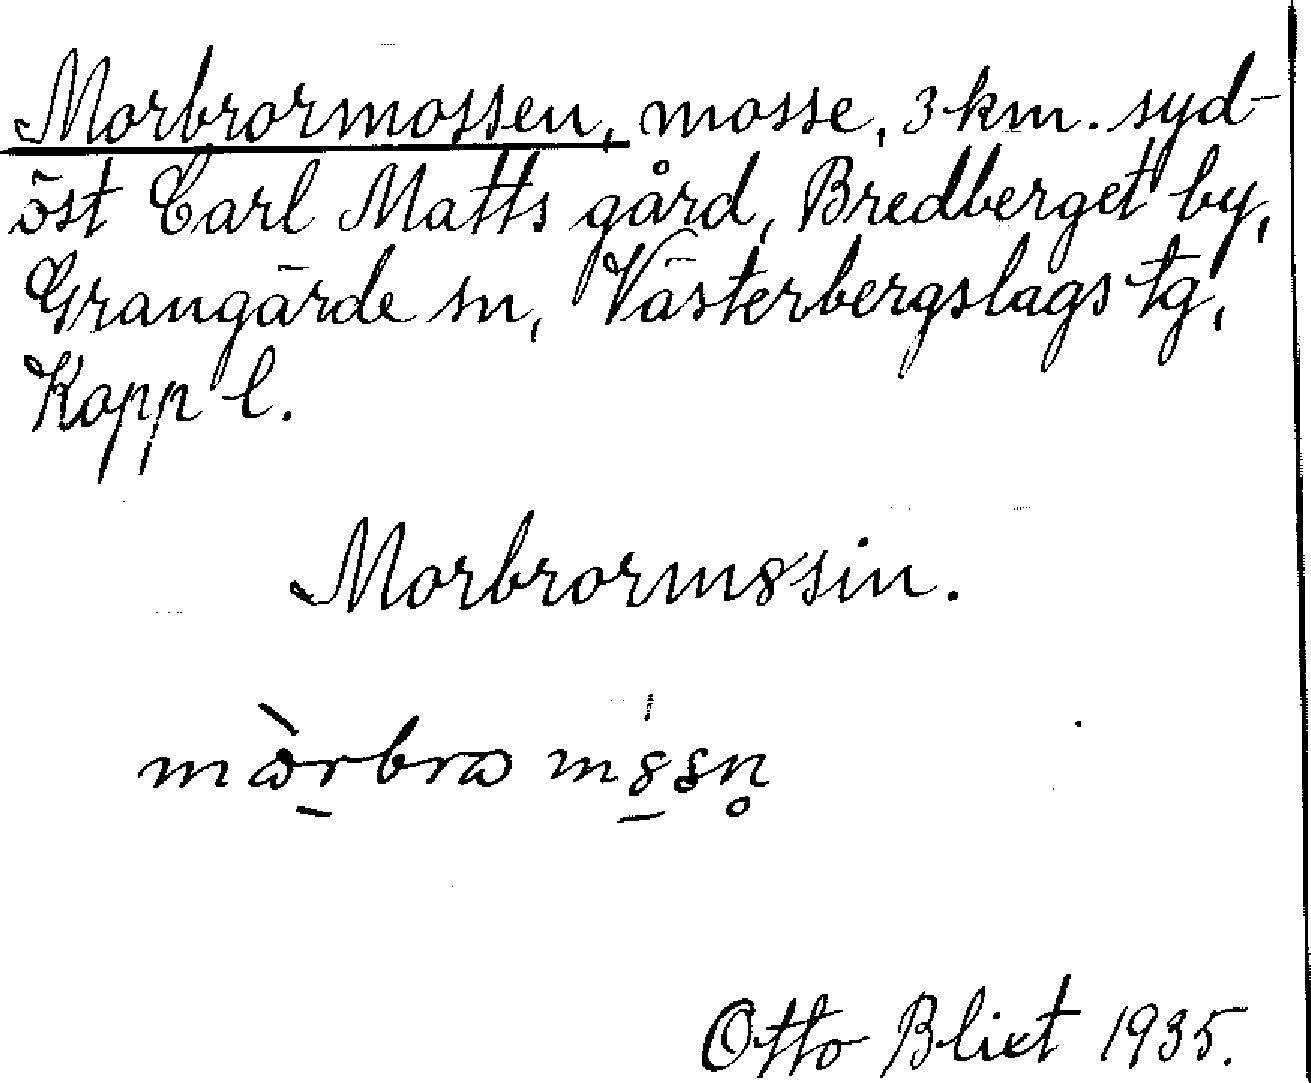 Morbrormossen, mosse, 3 km. syd-
öst Carl Matts gård, Bredberget by,
Grangärde sn, Västerbergslags tg,
Kopp l.
Morbrormȣsin.
Otto Blixt 1935.